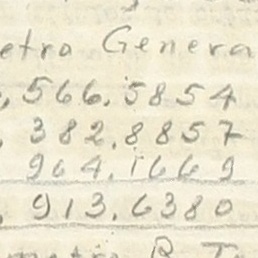 etro Genera
, 566.5854
, 382.8857
964.1669
, 913.6380
metro